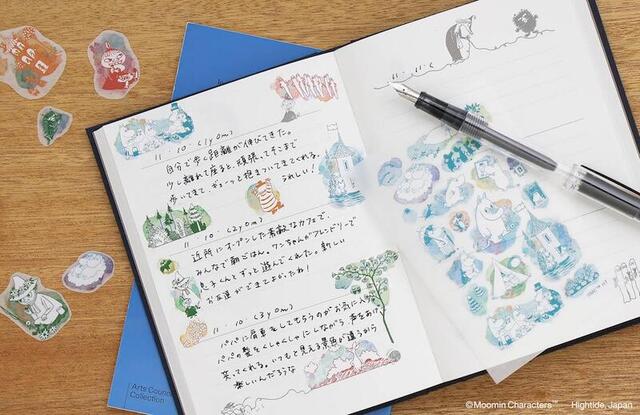 11・10 (1y0m)
自分で歩く距離が伸びてきた。
少し離れて座ると、頑張ってそこまで
歩いてきて、ぎゅーっと抱きついてきてくれる。
うれしい!
11・10 (2y0m)
近所にオープンした素敵なカフェで、
みんなで朝ごはん。ワンちゃんがフレンドリーで
息子くんとずっと遊んでくれた。新しい
お友達ができてよかったね!
11・10 (3y0m)
パパに肩車をしてもらうのがお気に入り。
パパの髪をくしゃくしゃにしながら、声をあげ
笑ってくれる。いつもと見える景色が違うから
楽しいんだろうな
11・11・く
Arts Counci
Collection
©Moomin Characters™ Hightide, Japan